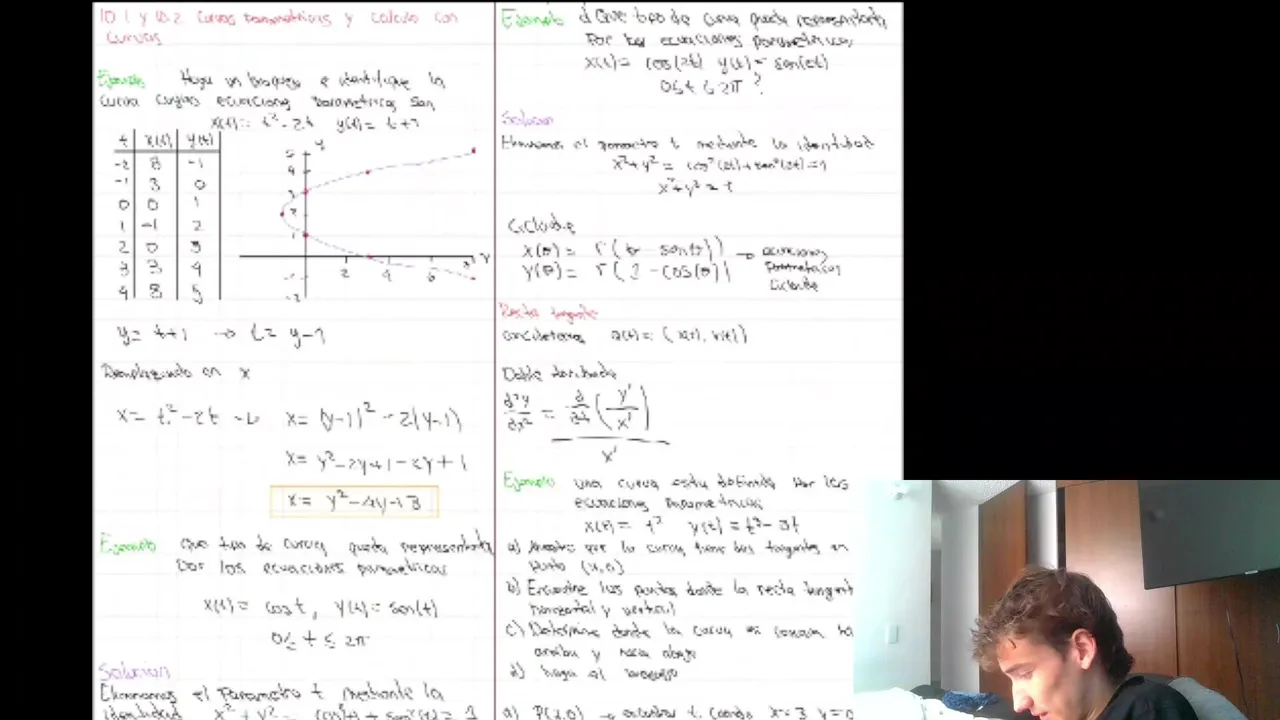 10.1 y 10.2 Curvas parametricas y calculo con
curvas
Ejemplo Haga un bosquejo e identifique la
curva cuyas ecuaciones parametricas son
x(t) = t² - 2t y(t) = t+1
t x(t) y(t)
-2 8 -1
-1 3 0
0 0 1
1 -1 2
2 0 3
3 3 4
4 8 5
y
5
4
3
2
1
-1
-2
2 4 6 8
y = t+1 → t = y-1
Remplazando en x
x = t² - 2t → x = (y-1)² - 2(y-1)
x = y² - 2y + 1 - 2y + 1
x = y² - 4y + 3
Ejemplo que tipo de curva queda representada
por los ecuaciones parametricas
x(t) = cos t, y(t) = sen(t)
0 ≤ t ≤ 2π
Solucion
Eliminamos el parametro t mediante la
identidad x² + y² = cos²(t) + sen²(t) = 1
Ejemplo ¿Que tipo de curva queda representada
por las ecuaciones parametricas
x(t) = cos(2t) y(t) = sen(2t)
0 ≤ t ≤ 2π ?
Solucion
Eliminamos el parametro t mediante la identidad
x² + y² = cos²(2t) + sen²(2t) = 1
x² + y² = 1
Cicloide
x(θ) = r(θ - sen θ) → ecuaciones
y(θ) = r(1 - cos(θ)) parametricas
cicloide
Recta tangente
α(t) = (x(t), y(t))
Doble derivada
d²y/dx² = d/dt (y'/x')
x'
Ejemplo una curva esta definida por las
ecuaciones parametricas
x(t) = t² y(t) = t³ - 3t
a) Muestre que la curva tiene dos tangentes en
punto
b) Encuentre los puntos donde la recta tangente
horizontal y vertical
c) Determine donde la curva es concava
arriba y hacia abajo
d) haga el bosquejo
a) P(3,0) → encontrar t cuando x=3 y=0